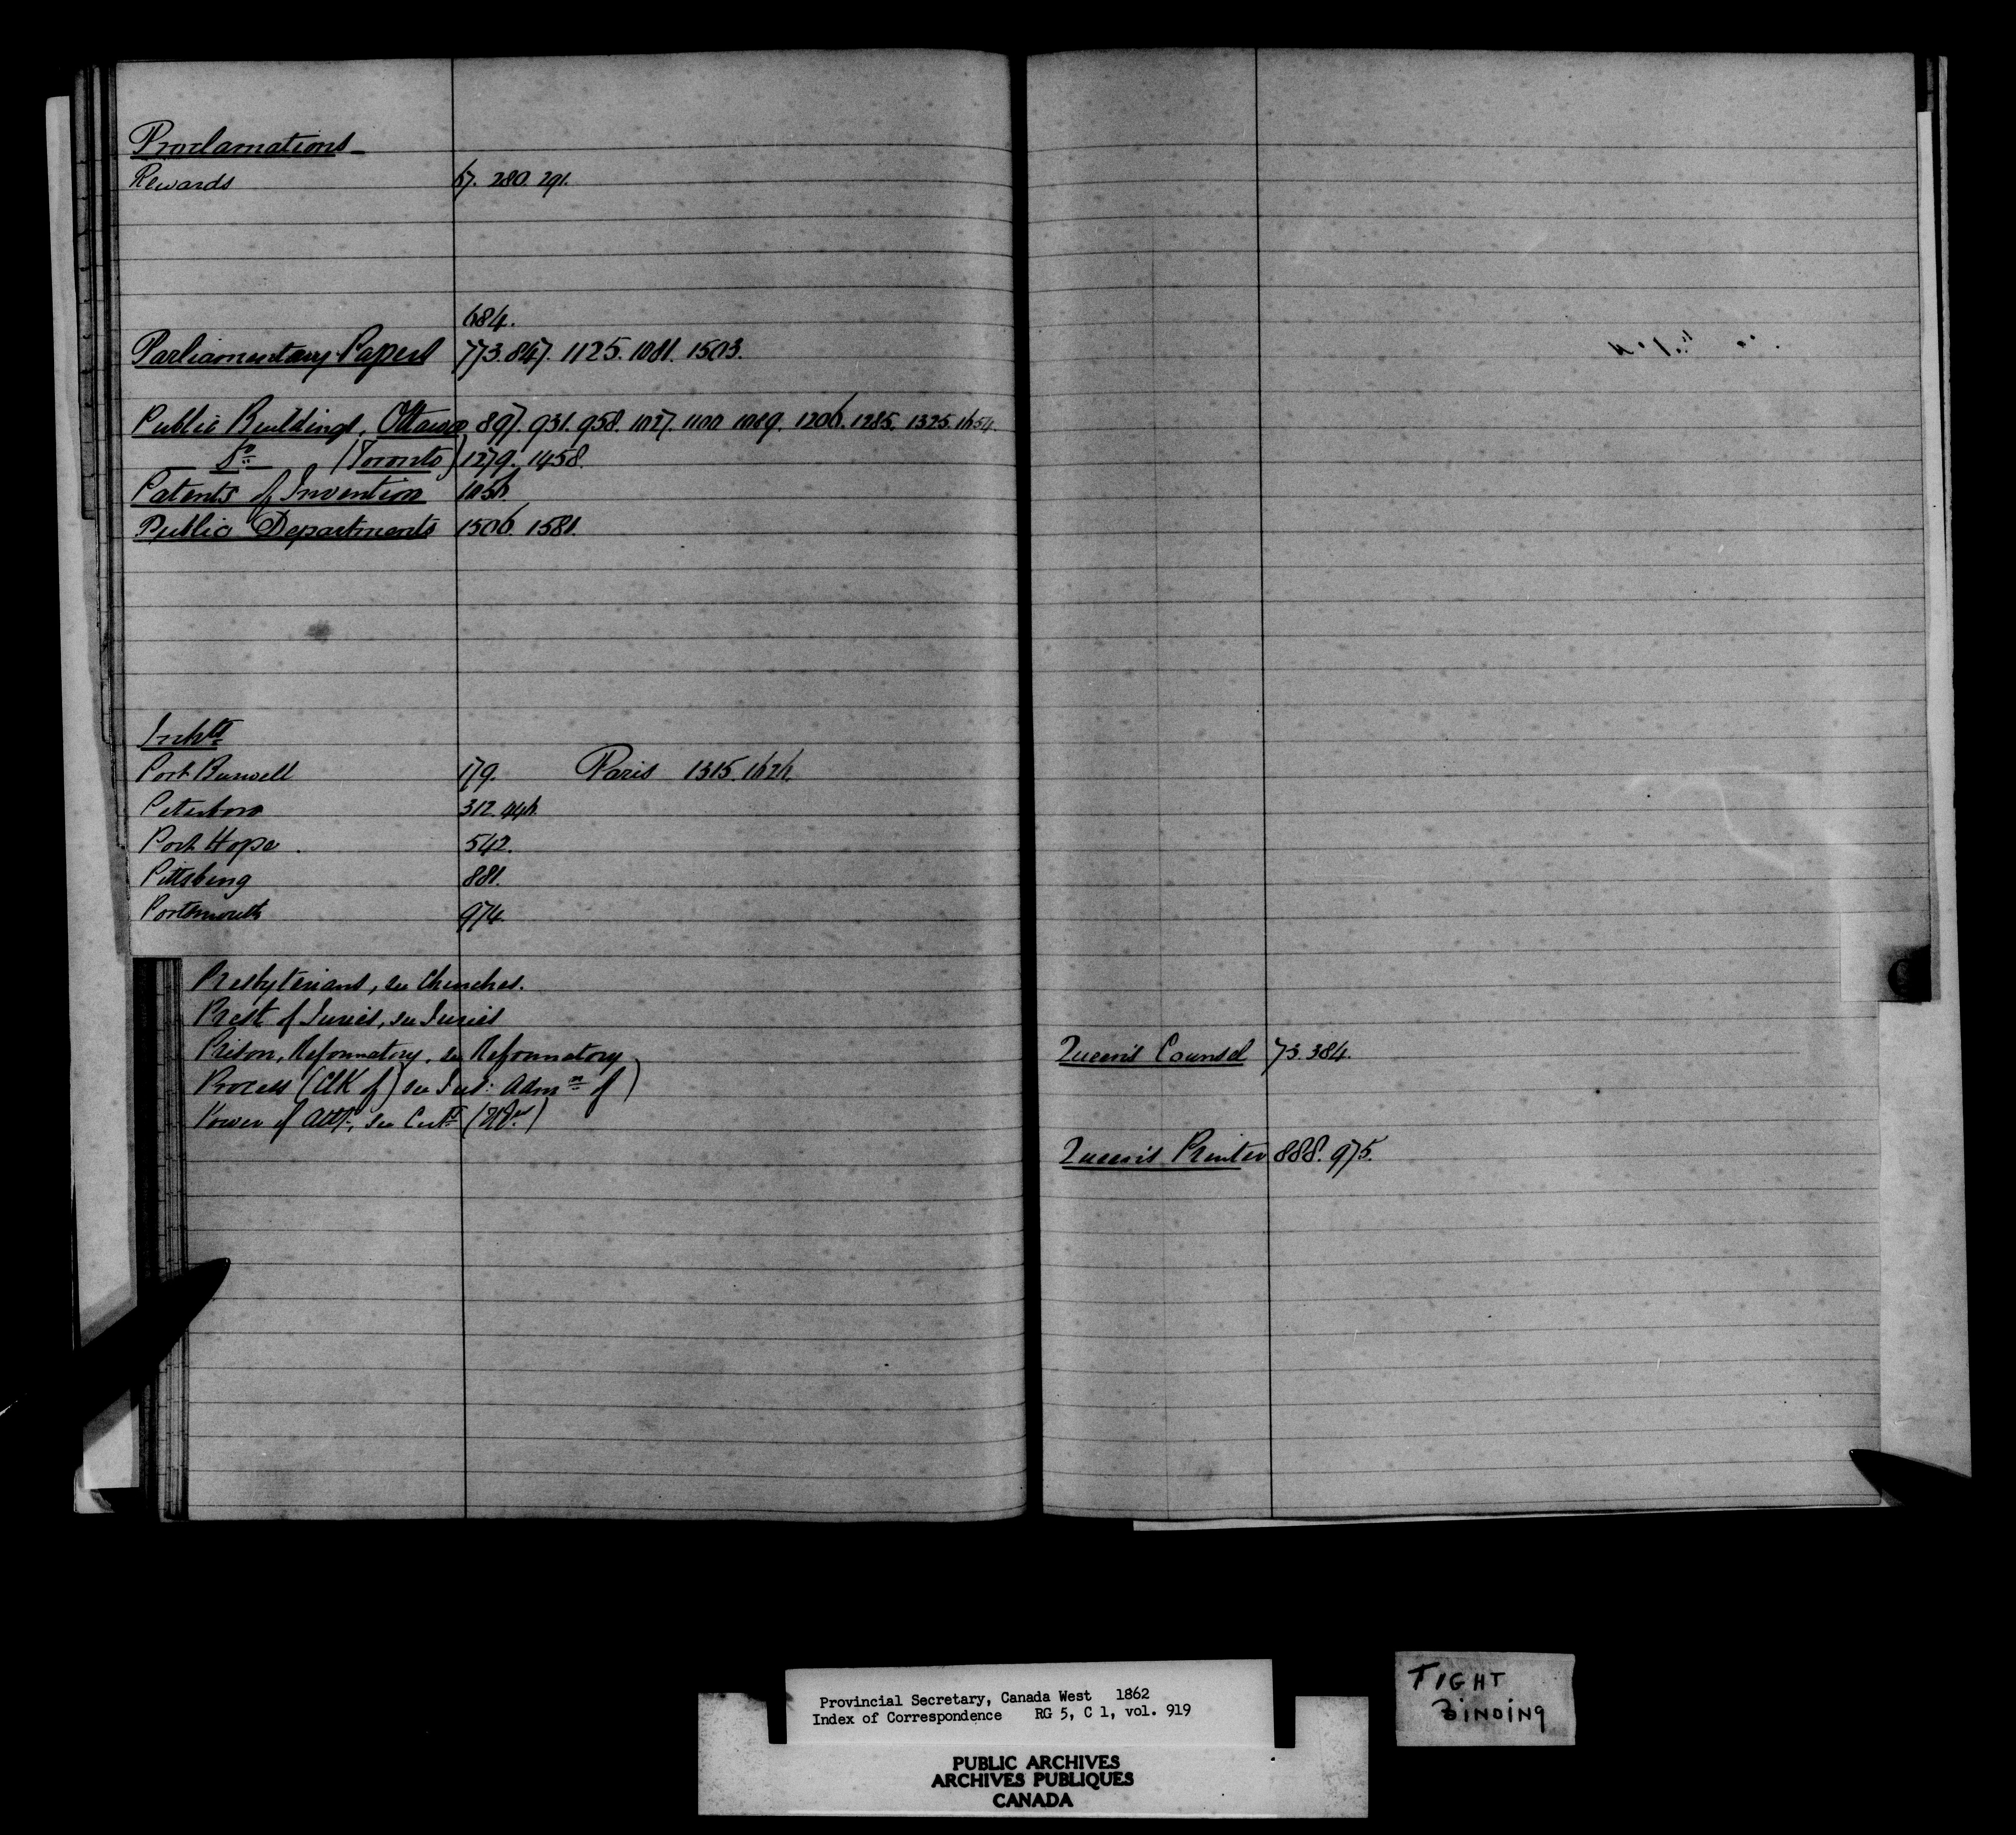 Proclamations
Rewards 67. 280. 291.
684.
Parliamentary Papers 773. 847. 1125. 1081. 1503.
Public Buildings, Ottawa 897. 931. 958. 1027. 1100 1089. 1206. 1285. 1325. 1654.
Do (Toronto) 1279. 1458.
Patents of Invention 1056.
Public Departments 1506. 1581.
Inhts
Port Burwell 179. Paris 1315. 1626.
Peterboro 312. 446.
Port Hope. 542.
Pittsburg 881.
Portsmouth 974.
Presbyterians, see Churches.
Prest of Juries, see Juries
Prison, Reformatory, see Reformatory
Process (Clk of) see Jus: Admn of)
Power of Atty, see Certs
Queen's Counsel 73. 384.
Queen's Printer 888. 975.
Provincial Secretary, Canada West 1862
Index of Correspondence RG 5, C 1, vol. 919
PUBLIC ARCHIVES
ARCHIVES PUBLIQUES
CANADA
TIGHT
BINDING